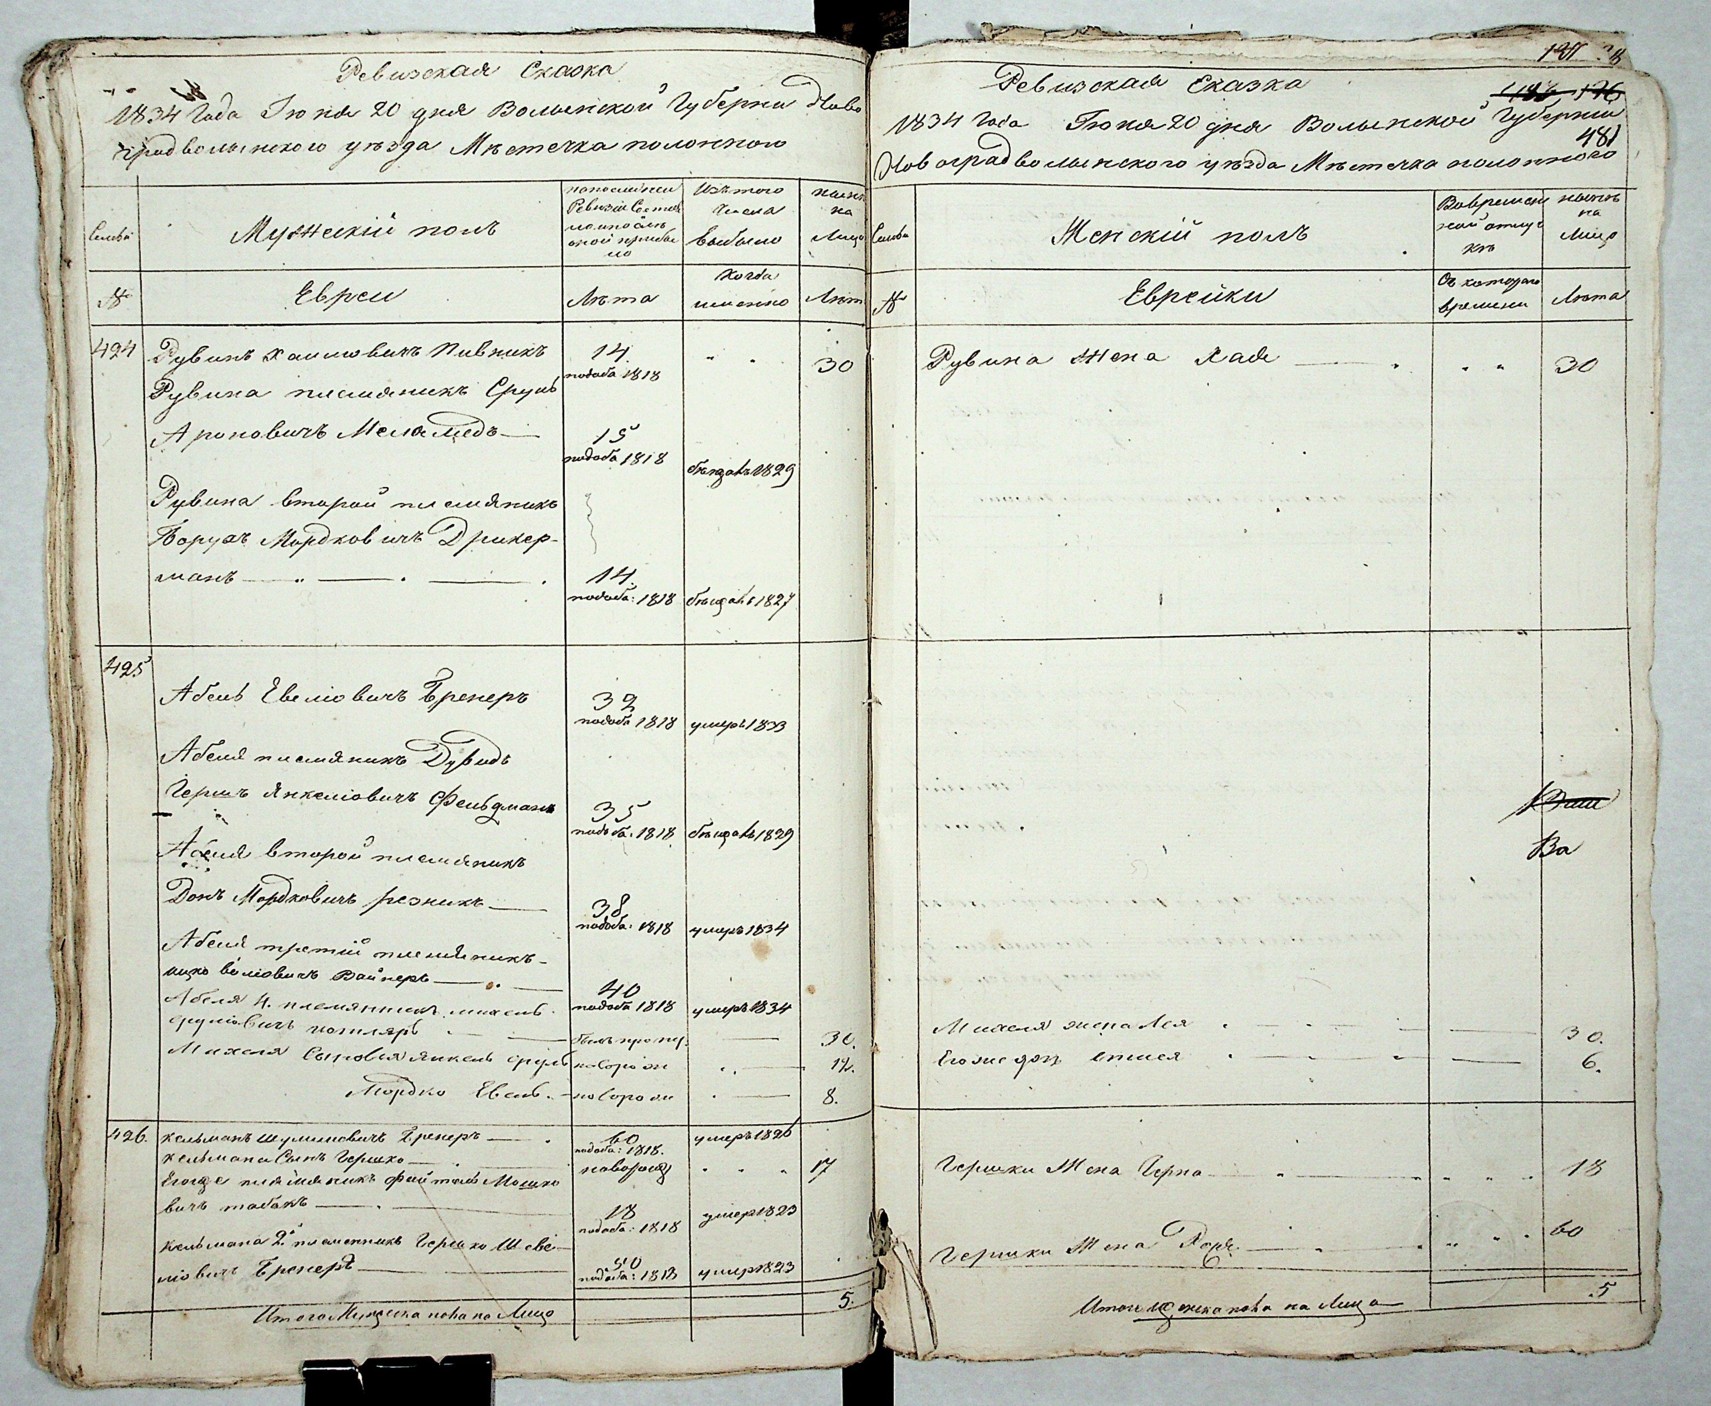 Ревизская Сказка
1834 Года Іюня 20 дня Волынской Губерніи Ново
градволынского уезда Мѣстечка полонного
Семьи
Мужескій полъ
по последней Ревизіи Состоя
ло и после
оной прибы
ло
Изъ того
Числа
выбыло
нынѣ
на
Лицо
№
Евреи
Лѣта
Когда
именно
Лѣта
424
Рувинъ Хаимовичъ Пивникъ
14
подоба 1818
30
Рувина племяникъ Сруль
Ароновичъ Меламедъ
15
подоба 1818
бѣжалъ 1829
Рувина второй племяникъ
Борухъ Мордковичъ Дрикер-
манъ
14.
подоба: 1818
бѣжалъ 1827
425
Абель Евеліовичъ Бренеръ
32
подоба 1818
умеръ 1833
Абеля племяникъ Дувидъ
Гершъ Янкеліовичъ Фельдманъ
35
подоба: 1818
бѣжалъ 1829
Абеля второй племяникъ
Донъ Мордковичъ резникъ
38
подоба: 1818
умеръ 1834
Абеля третій племяникъ-
ицко воліовичъ Вайнеръ
40
подоба 1818
умеръ 1834
Абеля 4. племянникъ михель
сруліовичъ котляръ
былъ проп:
30.
Михеля Сыновья янкель сруль
новорож
12.
Мордко Евель.
новорож
8.
426.
Кельманъ Шулимовичъ Бренеръ
60
подоба: 1818.
умеръ 1826
Кельмана Сынъ Гершко
новорож
17
Егоже племяникъ файтель Мошко
вичъ табакъ
18
подоба: 1818
умеръ 1823
Кельмана 2й племенникъ Гершко Шеве-
ліовичъ Бренеръ
50
подоба: 1818
умеръ 1823
Итого Мужеска пола на Лицо
5.
Ревизская Сказка
481
1834 Года Іюня 20 дня Волынской Губерніи
Новоградволынского уезда Мѣстечка полонного
Семьи
Женскій полъ
Вовремен
ной отлуч
кѣ
нынѣ
на
Лицо
№
Еврейки
Съ котораго
времени
Лѣта
Рувина Жена Хая
30
Ва
Михеля жена Лея
30.
Егоже дочь
6.
Гершки Жена Черна
18
Гершки Жена
60
Итого женска пола на Лицо
5